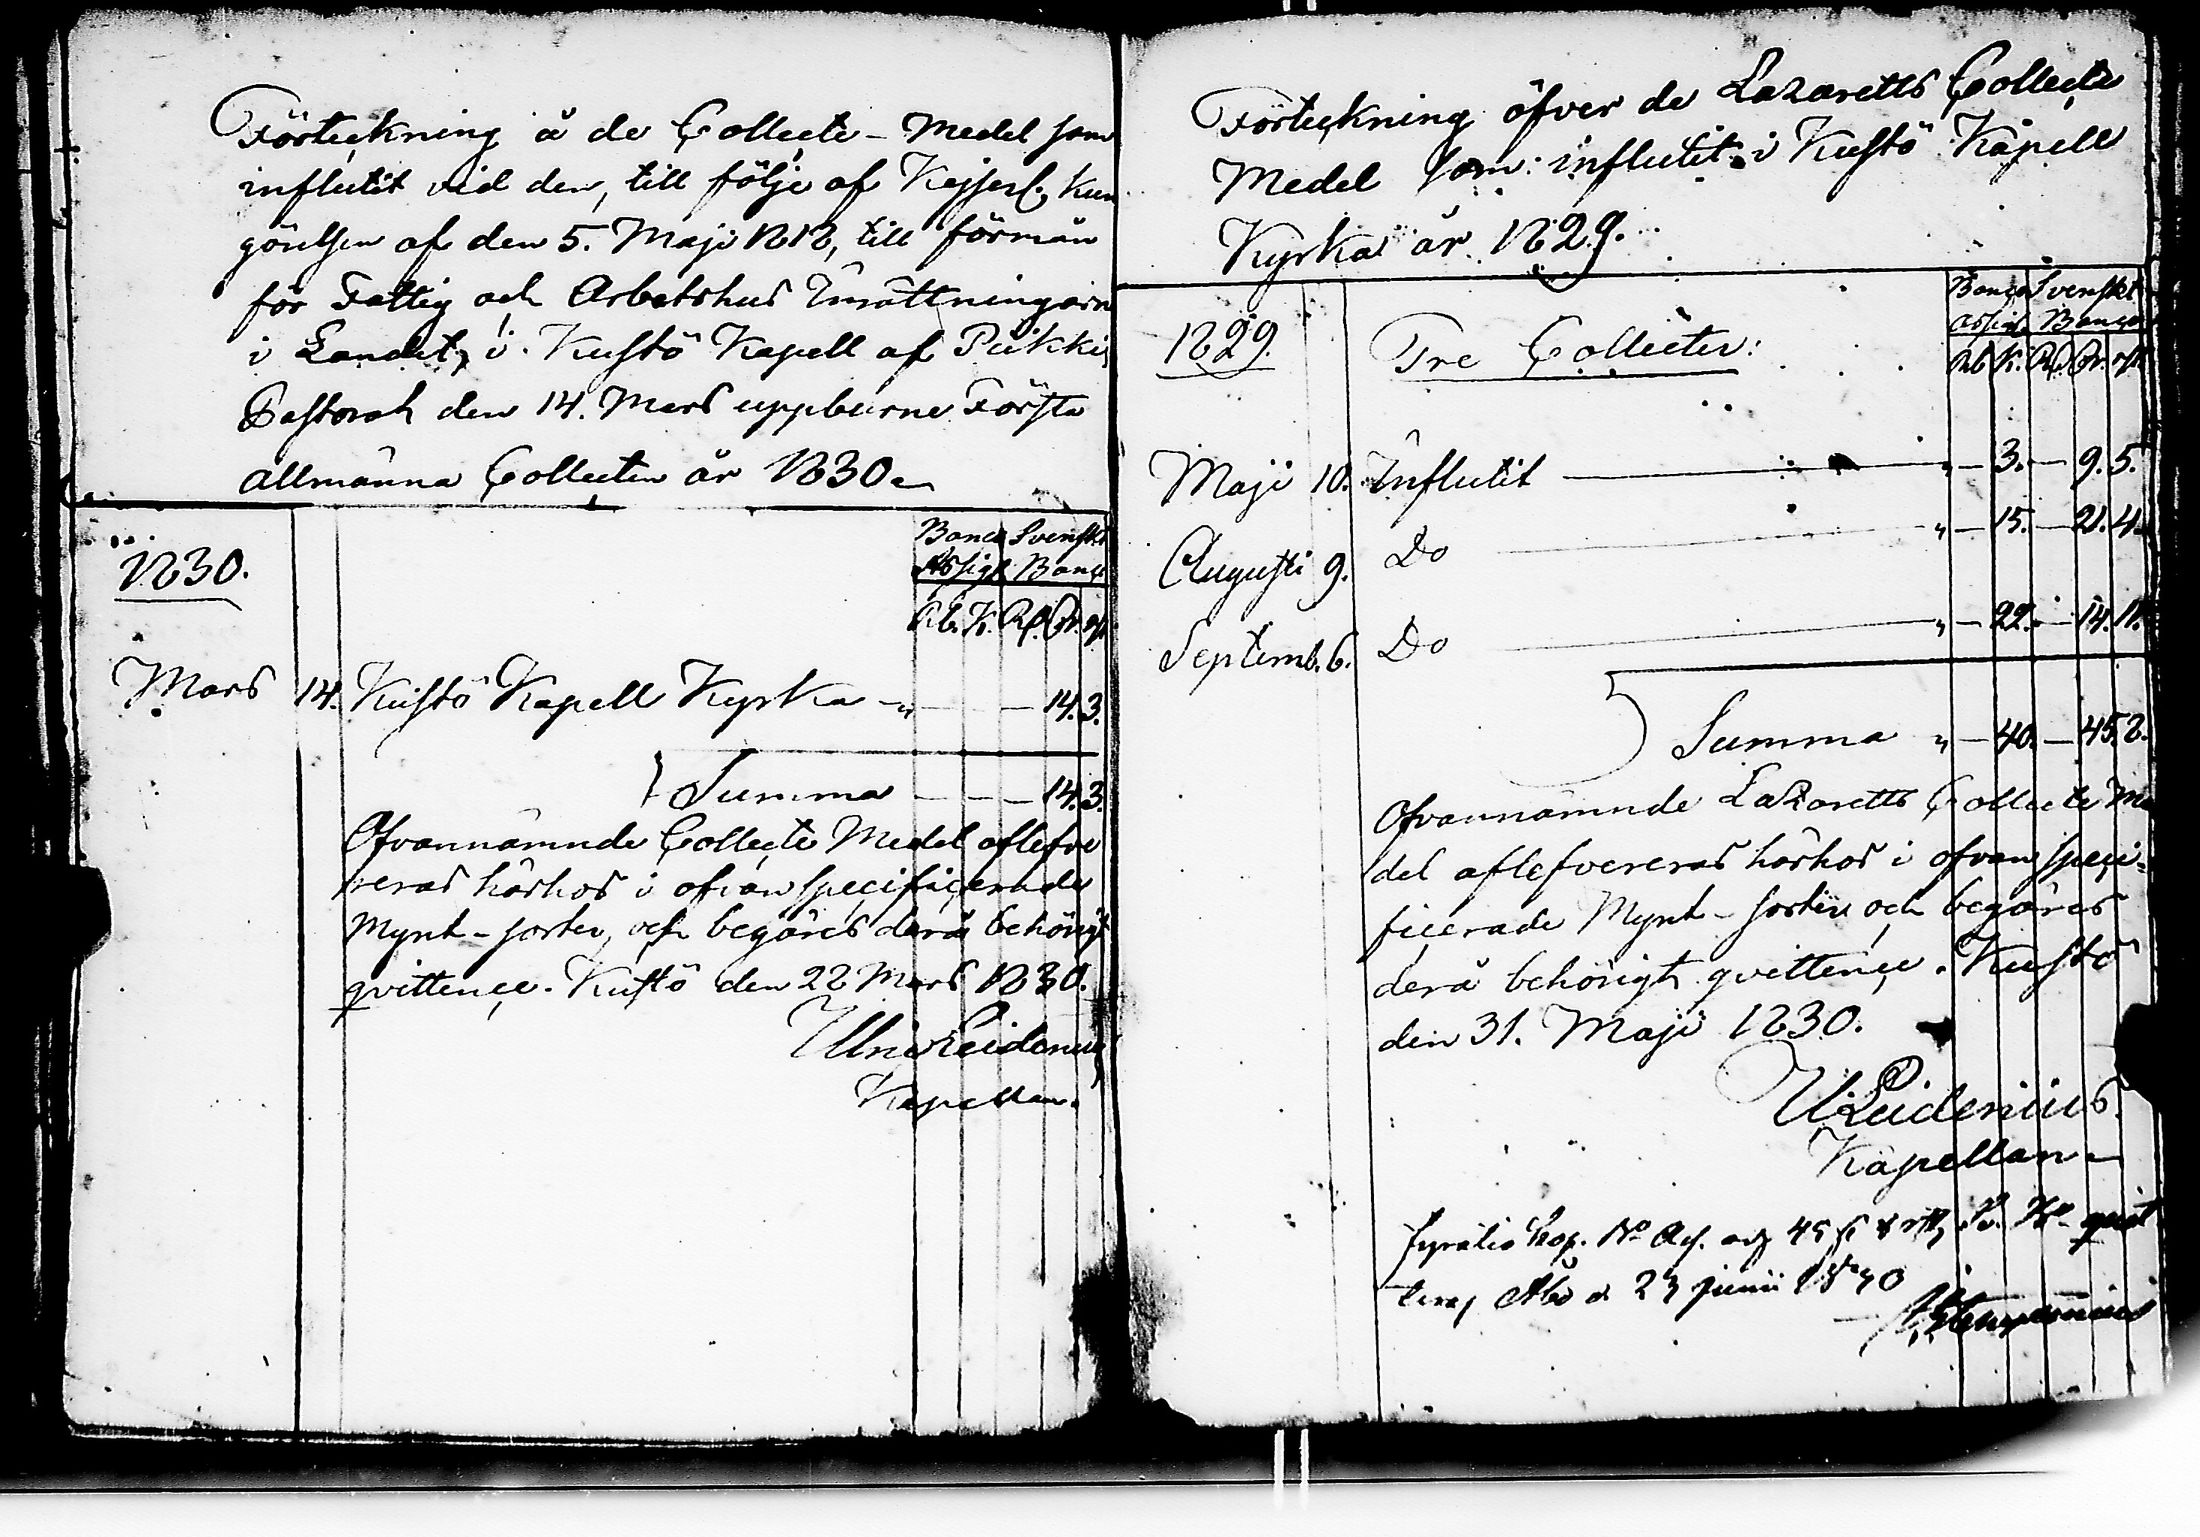 Förteckning å de Collecte-Medel som
influtit vid den, till följe af Kejserl. Kun
görelsen af den 5. Maji 1818, till förmån
för Fattig och Arbetshus Inrättningarn
i Landet, i Kustö Kapell af Pikkis
Pastorat den 14. Mars uppburne Första
allmänna Collecten år 1830
Banco Svenskt
Assign. Banco
1830.
Rb. K. Rd. sk. rst.
Mars 14. Kustö Kapell Kyrka " — — 14. 3.
Summa — — — 14. 3.
Ofvannämnde Collecte Medel aflefve
reras härhos i ofvan specificerade
Mynt-sorter, och begäres derå behörigt
qvittence. Kustö den 22 Mars 1830.
Ulric Leidenius
Kapellan.
Förteckning öfver de Lazaretts Collecte
Medel som influtit i Kustö Kapell
Kyrka år 1829.
Banco Svenskt
Assign. Banco
1829. Tre Collecter:
Rb K. Rd. sk. rst
Maji 10. Influtit " — 3. — 9. 5.
Augusti 9. Do " — 15. — 21. 4.
Septemb. 6. Do " — 22. — 14. 11.
Summa " — 40. — 45. 8.
Ofvannämnde Lazaretts Collecte Me
del aflefvereras härhos i ofvan speci-
ficerade Mynt-sorter och begäres
derå behörigt qvittence. Kustö
den 31. Maji 1830.
U Leidenius.
Kapellan
fyratio kop. Bo As. och 45 s 8 rst Sv. Bo qvit
teras Åbo d 23 junii 1830